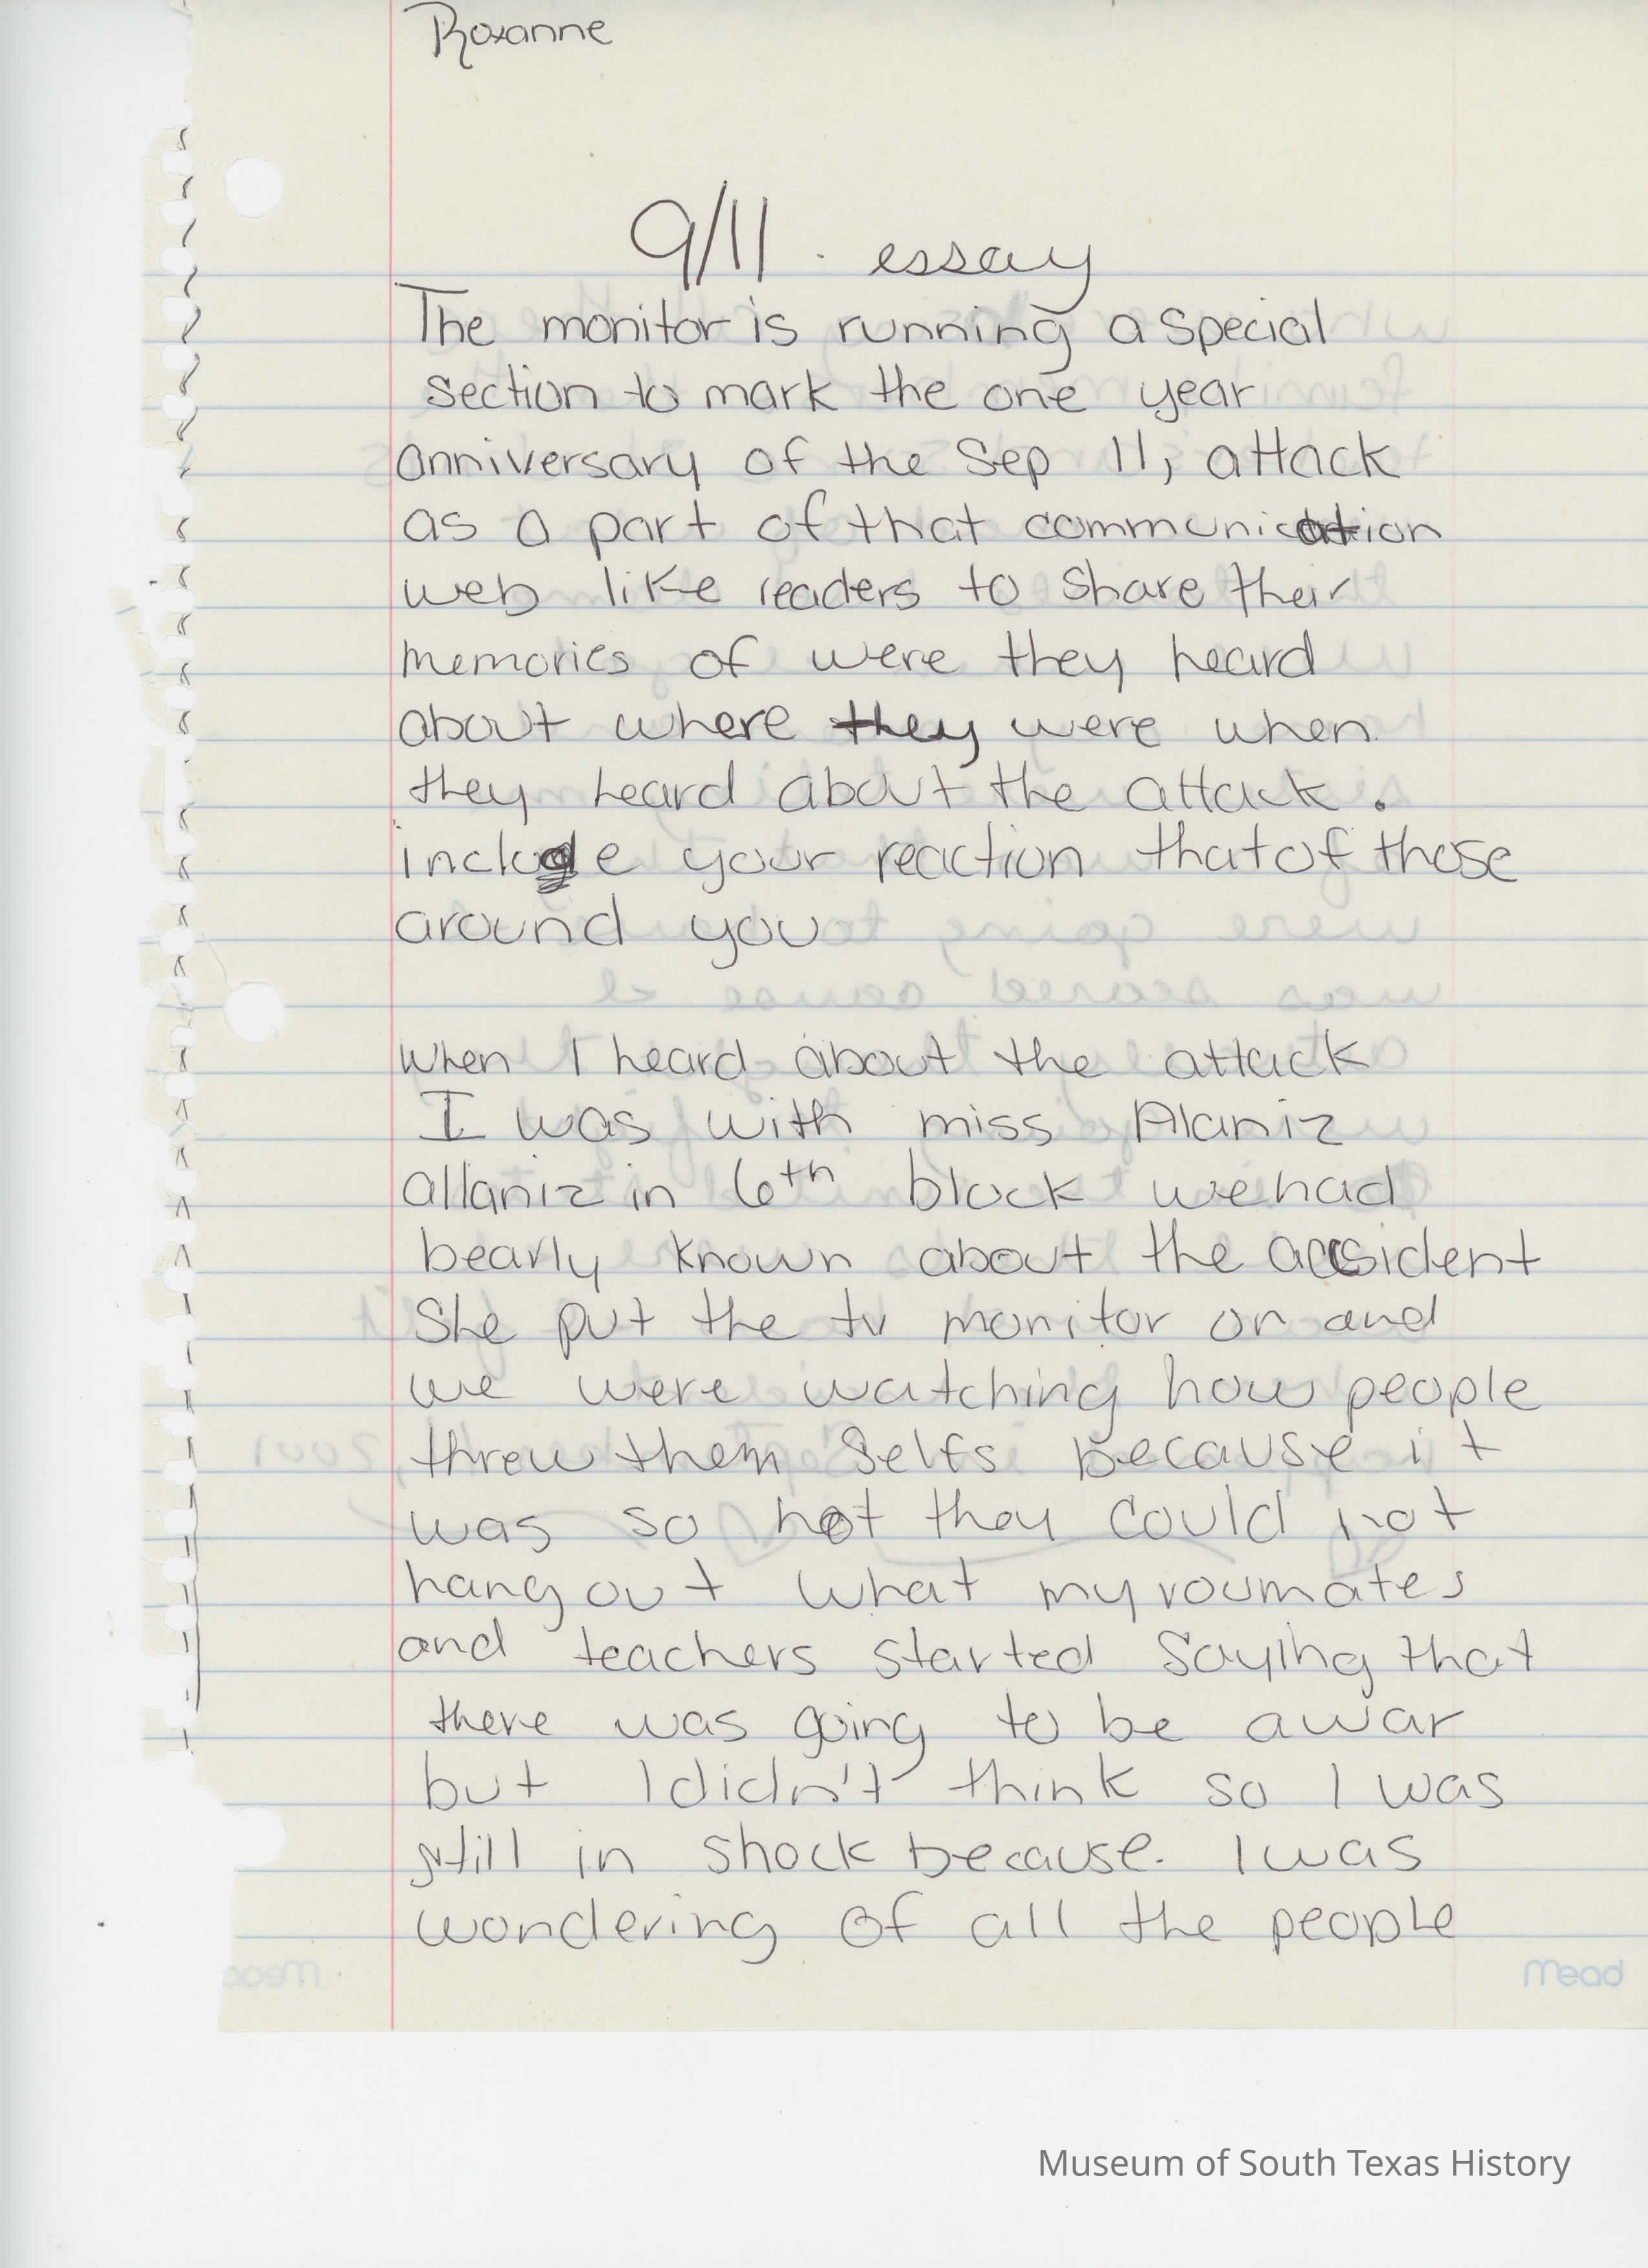 Roxanne
9/11 essay
The monitor is running a special
section to mark the one year
anniversary of the Sep 11, attack
as a part of that communication
web like readers to share their
memories of were they heard
about where they were when
they heard about the attack.
include your reaction that of those
around you
when I heard about the attack
I was with miss Alaniz
allaniz in 6th block we had
bearly known about the accsident
She put the tv monitor on and
we were watching how people
threw them selfs because it
was so hot they could not
hang out what my roumates
and teachers started saying that
there was going to be a war
but I didn't think so I was
still in shock because. I was
wondering of all the people
Mead
Museum of South Texas History